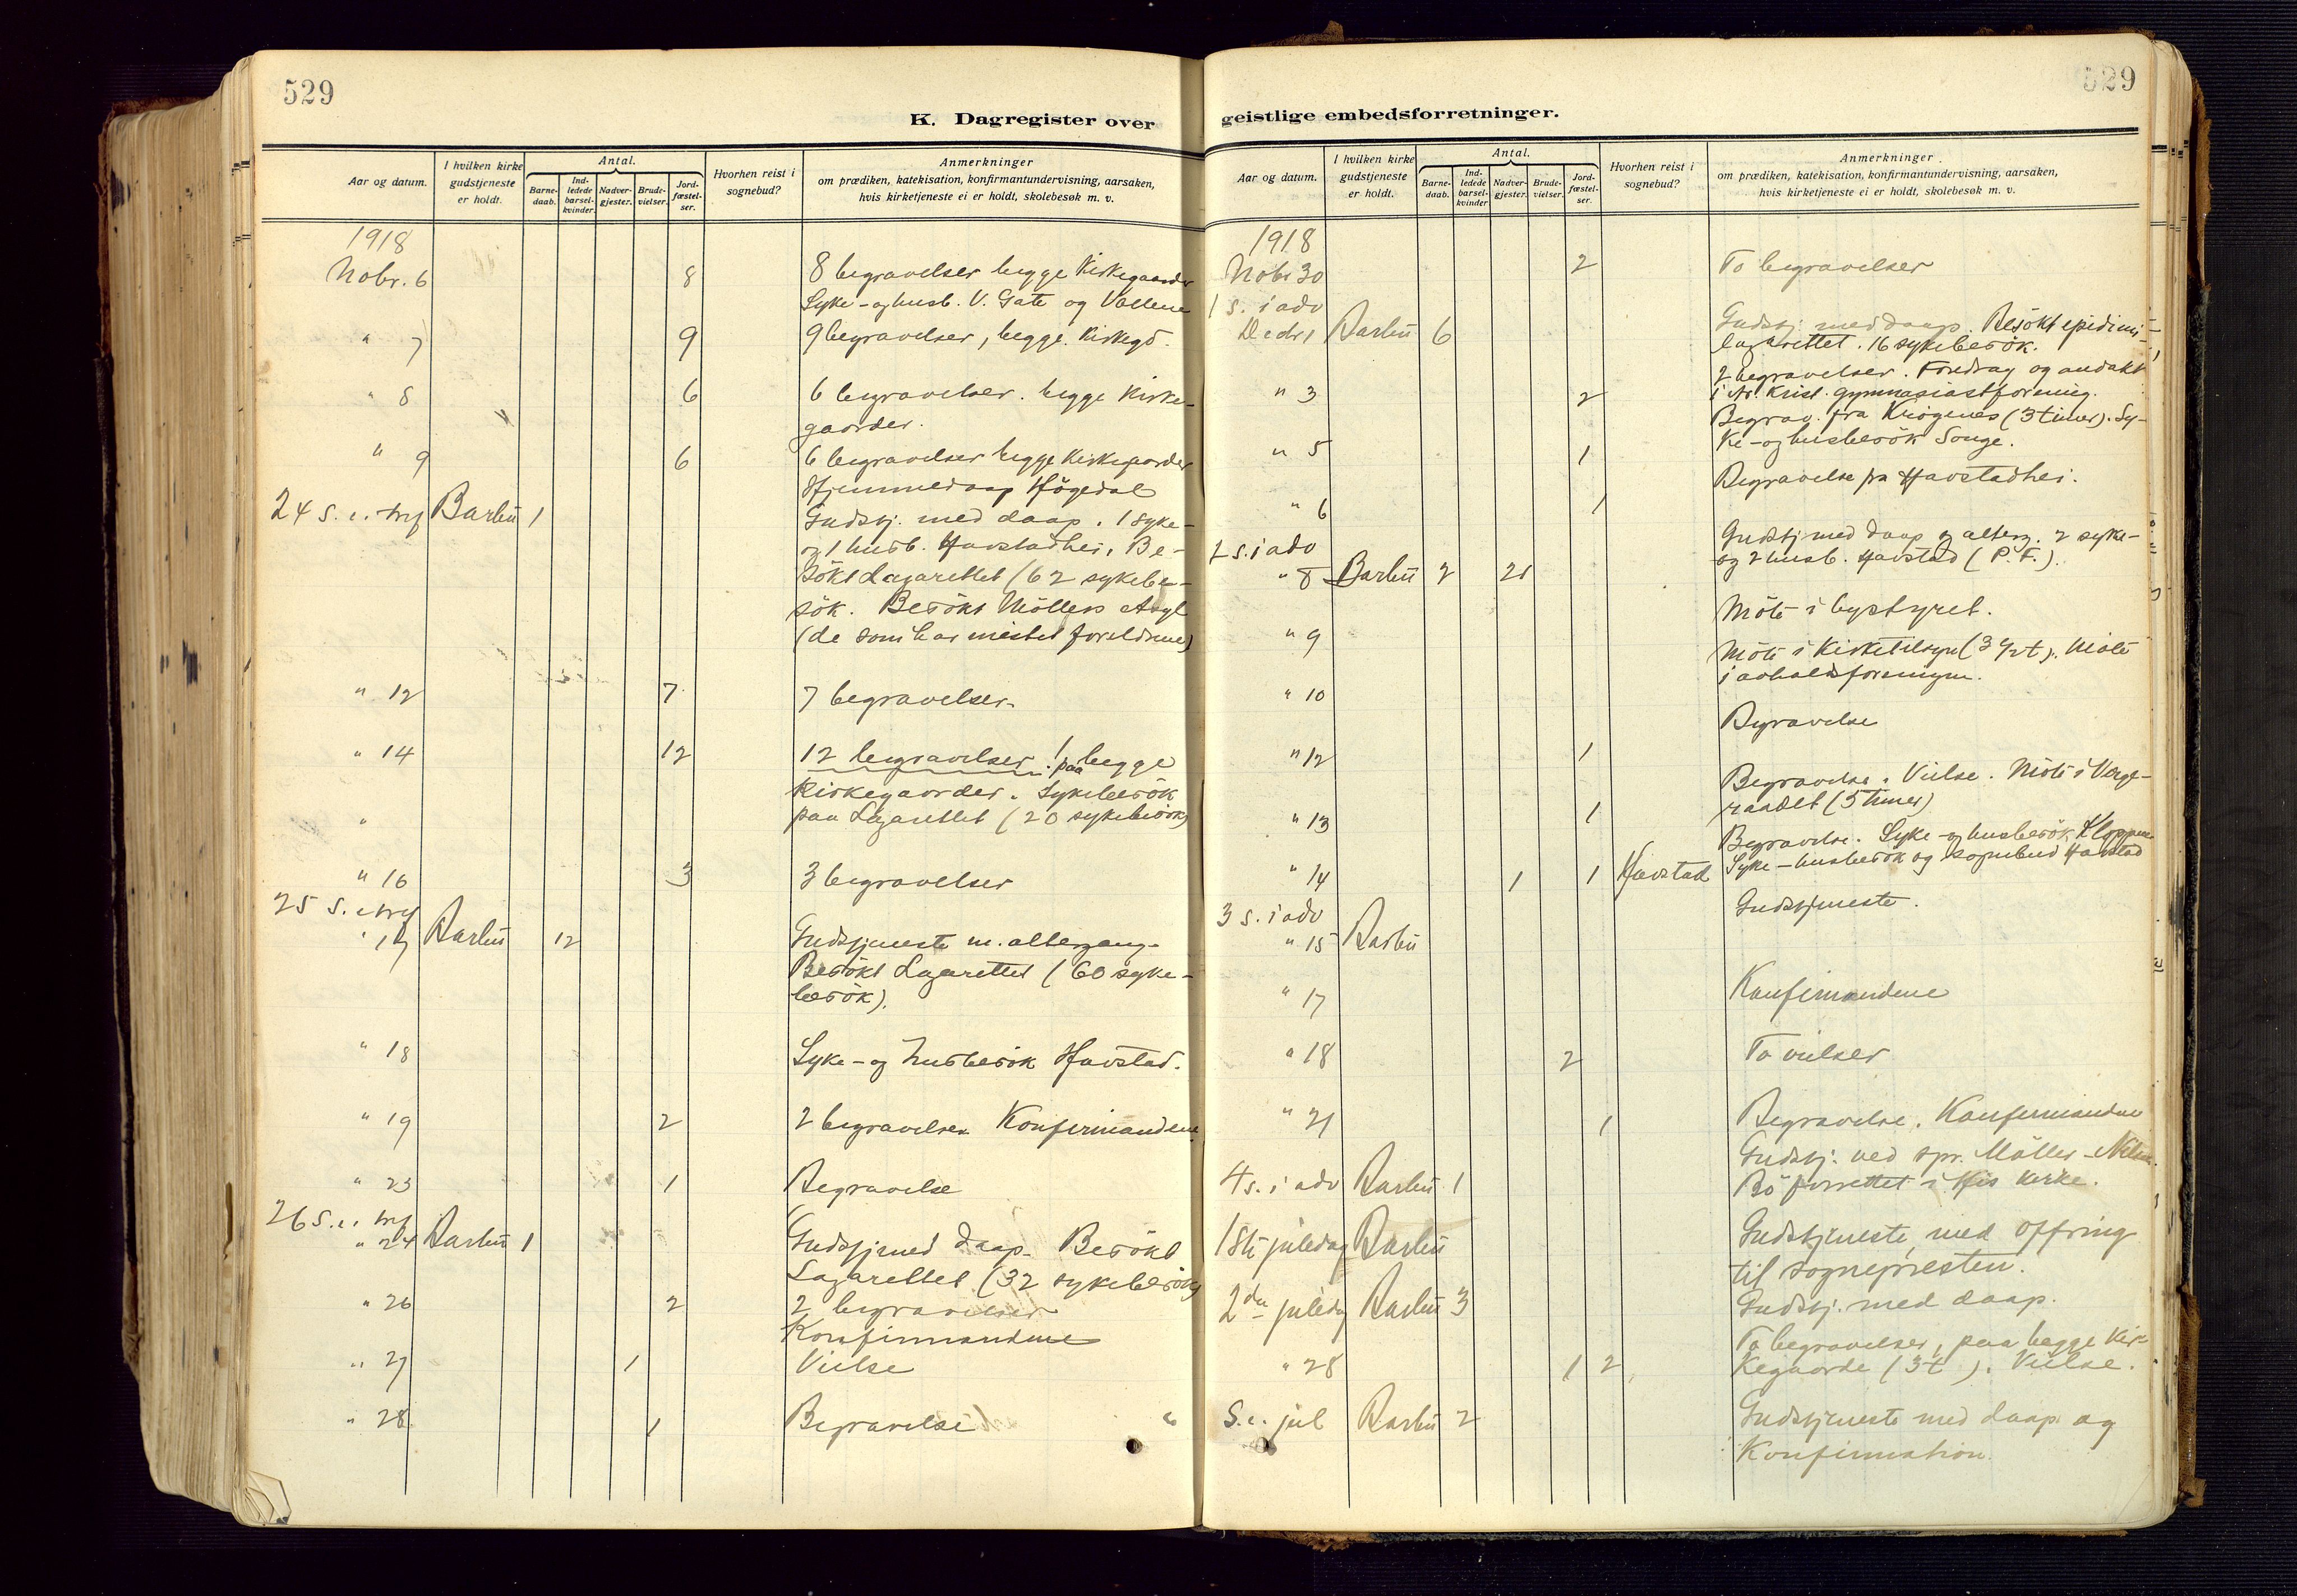 529
K. Dagregister over
Aar og datum.
I hvilken kirke gudstjeneste er holdt.
Antal.
Barne-daab.
Ind-ledede barsel-kvinder.
Nadver-gjester.
Brude-vielser.
Jord-fæstel-ser.
Hvorhen reist i sognebud?
Anmerkninger
om prædiken, katekisation, konfirmantundervisning, aarsaken,
hvis kirketjeneste ei er holdt, skolebesøk m. v.
1918
Nobr. 6 8 8 begravelser begge Kirkegaarder
Syke- og husb. V. Gate og Vollene
" 7 9 9 begravelser, begge Kirkegd.
" 8 6 6 begravelser. begge Kirke-
gaarder.
" 9 6 6 begravelser begge Kirkegaarder
Hjemmedaap Högedal
24 S. e. trf Barbu 1 Gudstj. med daap. 1 syke-
og 1 husb. Havstadhei. Be-
sökt Lazarettet (62 sykebe-
sök. Besökt Möllers Asyl
(de som har mistet foreldrene)
" 12 7 7 begravelser.
" 14 12 12 begravelser! paa begge
Kirkegaarder. Sykebesök
paa Lazarettet (20 sykebesök)
"
" 16 3 3 begravelser
25 S. e. tref
" 17 Barbu 12 Gudstjeneste m. altergang.
Besökt Lazarettet (60 syke-
besök).
" 18 Syke- og husbesök Havstad.
" 19 2 2 begravelser Konfirmandene
" 23 1 Begravelse
26 S. e. trf
" 24 Barbu 1 Gudstj med daap. Besökt
Lazarettet (32 sykebesök)
" 26 2 2 begravelser
Konfirmandene
" 27 1 Vielse
" 28 1 Begravelse "
529
geistlige embedsforretninger.
Aar og datum.
I hvilken kirke gudstjeneste er holdt.
Antal.
Barne-daab.
Ind-ledede barsel-kvinder
Nadver-gjester.
Brude-vielser.
Jord-fæstel-ser.
Hvorhen reist i sognebud?
Anmerkninger
om prædiken, katekisation, konfirmantundervisning, aarsaken,
hvis kirketjeneste ei er holdt, skolebesøk m. v.
1918
Nobr 30 2 To begravelser
1 S. i adv
Decbr 1 Barbu 6 Gudstj. med daap. Besökt epidemi-
lazarettet. 16 sykebesök.
" 3 2 2 begravelser. Foredrag og andakt
i Ar. Krist. gymnasiastforening.
" 5 1 Begrav. fra Krögenes (3 timer). Sy-
ke- og husbesök Songe.
" 6 1 Begravelse fra Havstadhei.
2 S. i adv
" 8 Barbu 2 21 Gudstj med daap og alterg. 2 syke-
og 2 husb. Havstad (P. F.).
" 9 Möte i bystyret.
" 10 Möte i Kirketilsyn (3 1/2 t). Möte
i avholdsforeningen.
" 12 1 Begravelse
" 13 1 Begravelse. Vielse. Möte i Verge-
raadet (5 timer)
" 14 1 1 Havstad Begravelse. Syke- og husbesök Kloppene
Syke- husbesök og sognebud Havstad
3 S. i adv
" 15 Barbu Gudstjeneste.
" 17 Konfirmandene
" 18 2 To vielser
" 21 1 Begravelse. Konfirmandene
4 S. i adv Barbu 1 Gudstj. ved spr. Möller-Nilsen.
Bö forrettet i His Kirke.
1ste juledag Barbu Gudstjeneste med offring
til sognepresten.
2den juledag Barbu 3 Gudstj. med daap.
" 28 1 2 To begravelser, paa begge Kir-
kegaarde (3 t). Vielse.
S. e. jul Barbu 2 Gudstjeneste med daap og
Konfirmation.